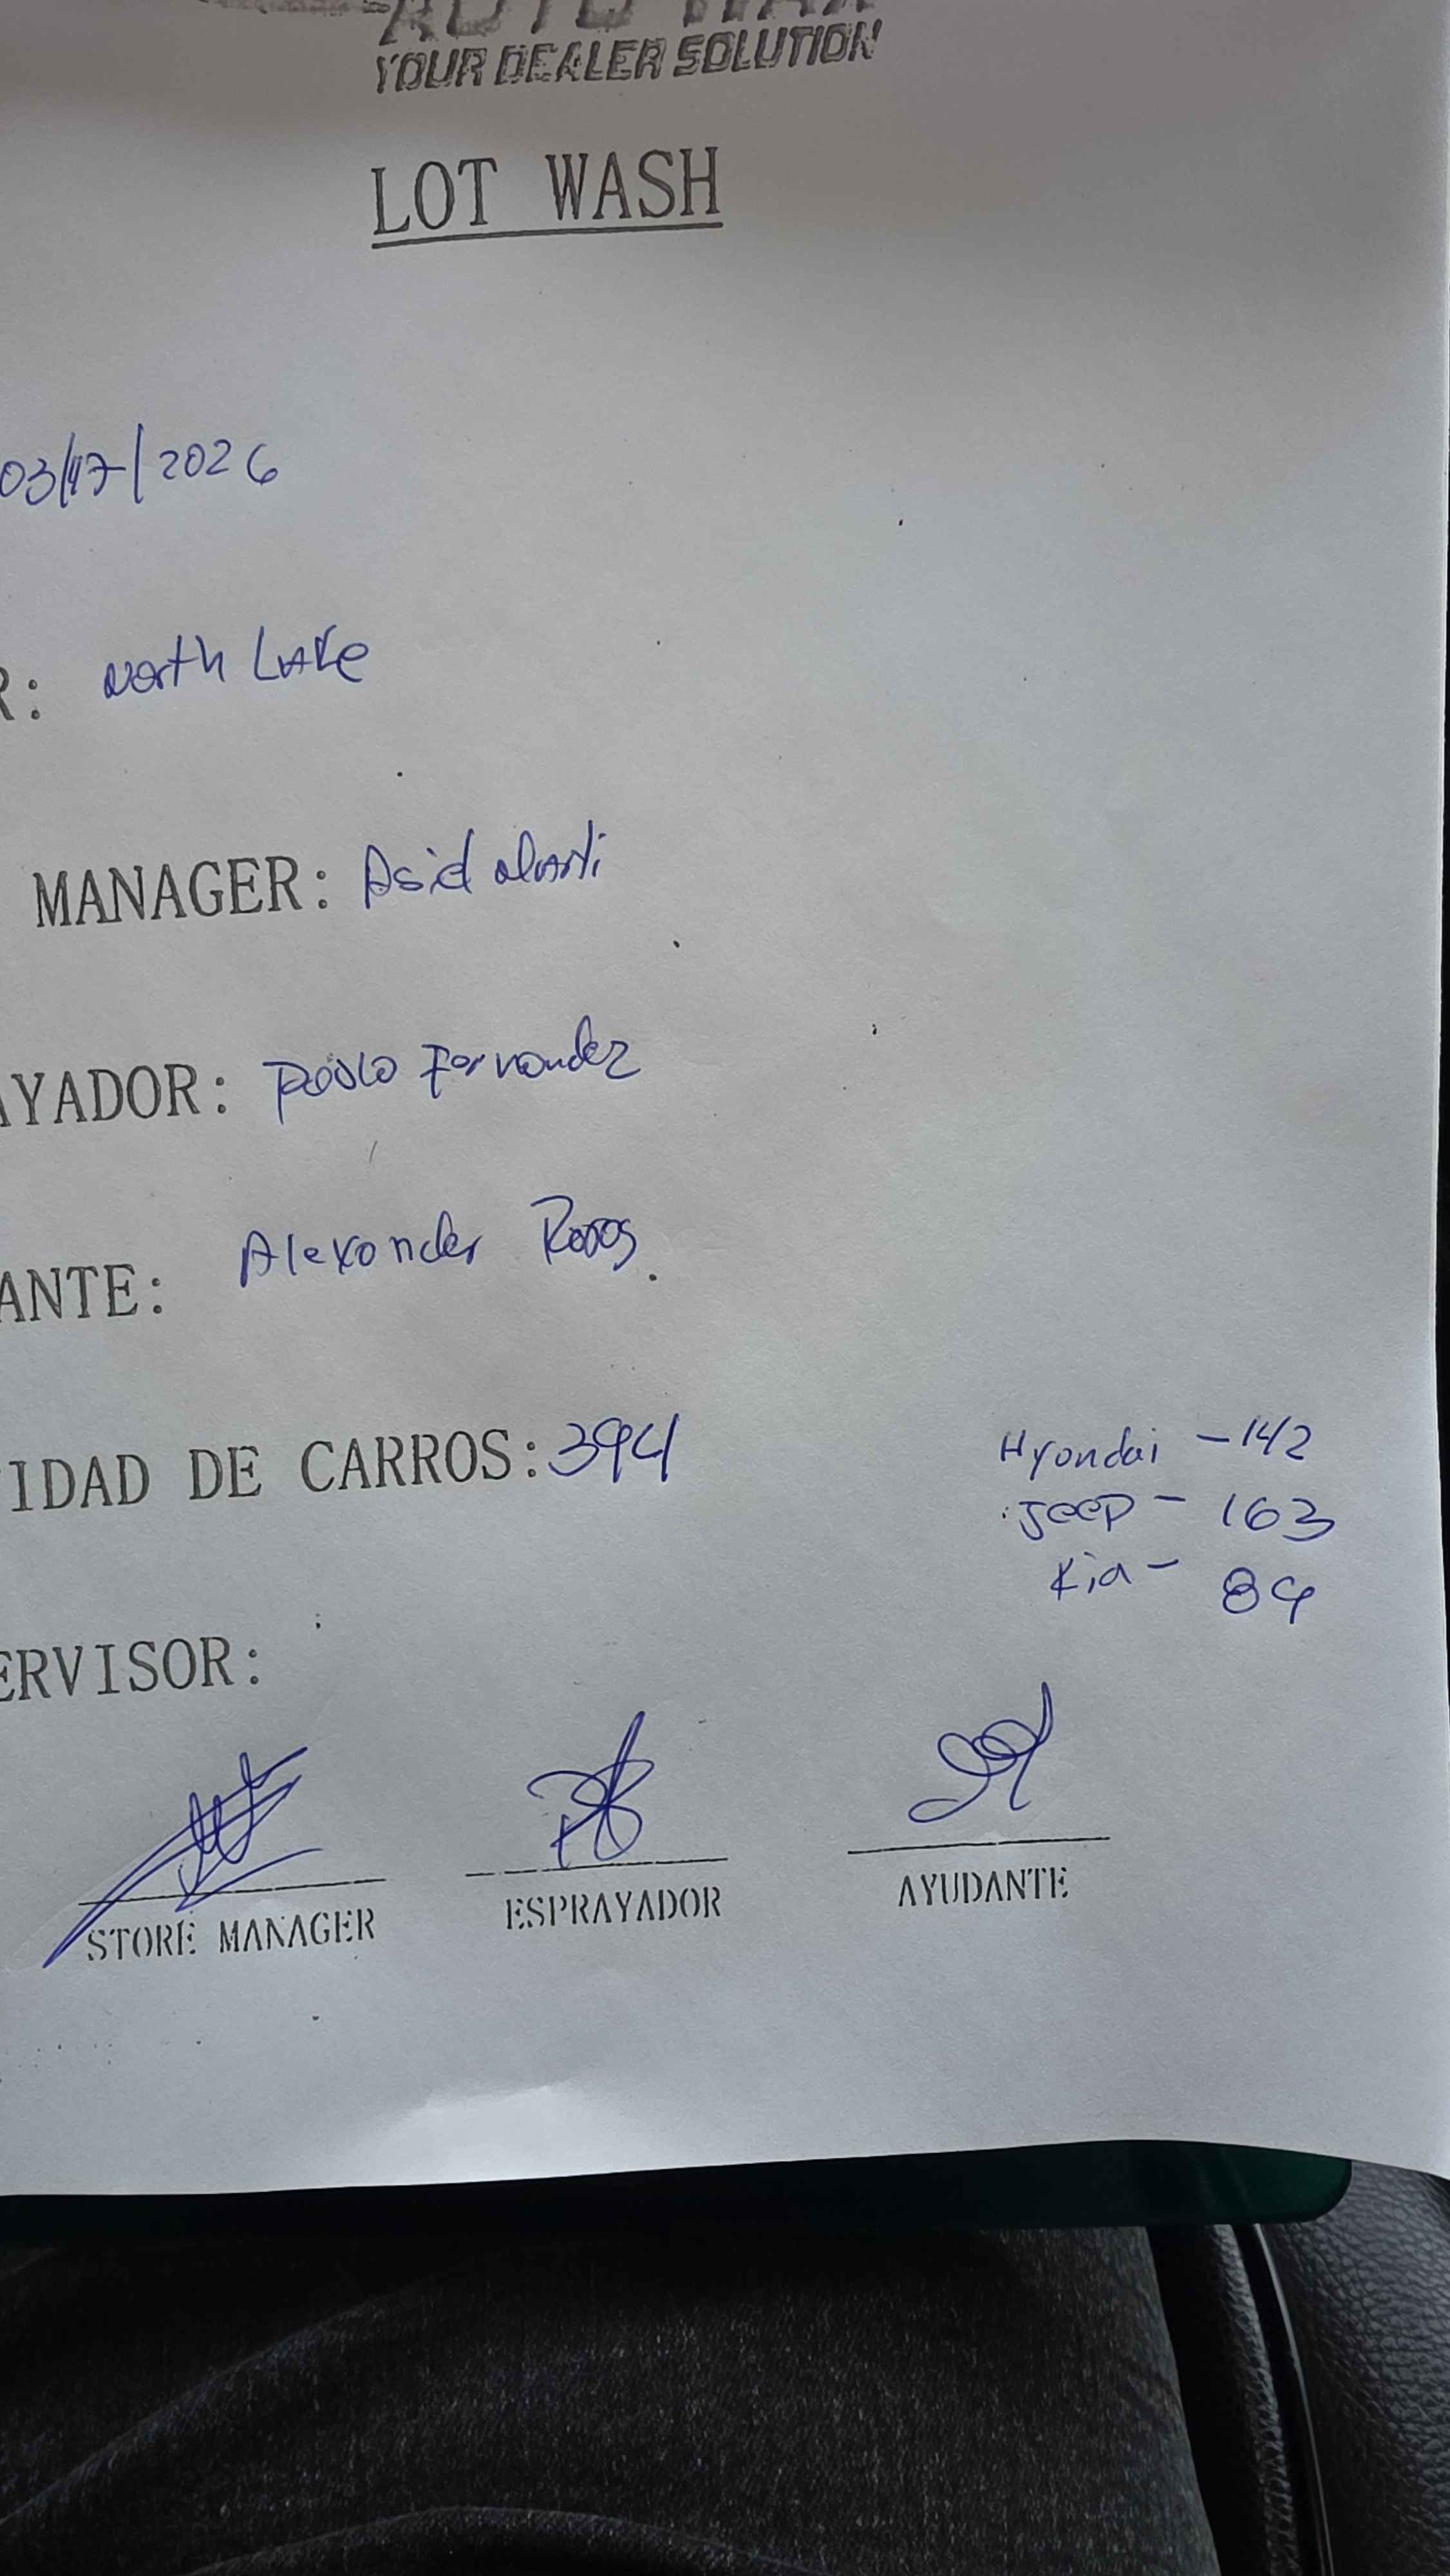 YOUR DEALER SOLUTION
LOT WASH
03/17/2026
R: North Lake
MANAGER: Asid
AYADOR: Pablo Fernandez
ANTE: Alexander
IDAD DE CARROS: 394
Hyondai - 142
Jeep - 163
Kia - 89
ERVISOR:
STORE MANAGER
ESPRAYADOR
AYUDANTE